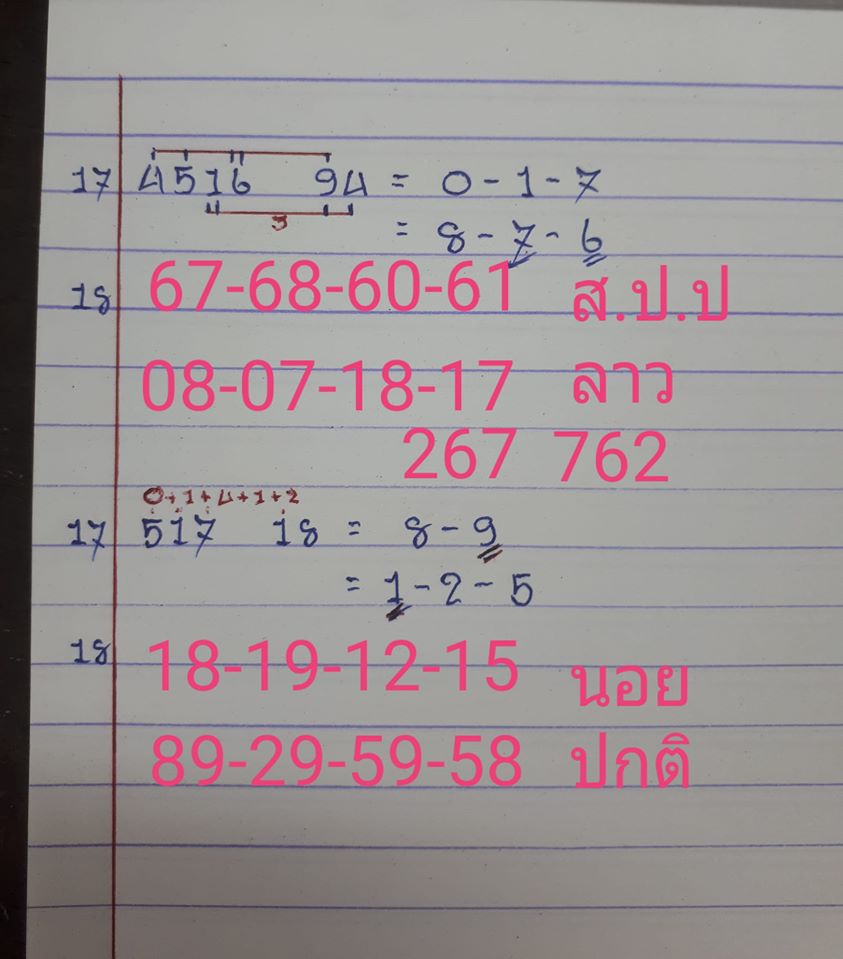 17 4516 94 = 0-1-7
3
= 8-7-6
18 67-68-60-61 ส.ป.ป
08-07-18-17 ลาว
267 762
0+1+4+1+2
17 517 18 = 8-9
= 1-2-5
18 18-19-12-15 นอย
89-29-59-58 ปกติ